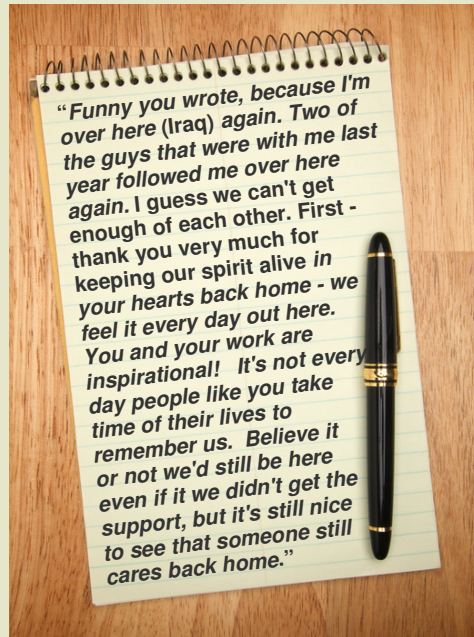 “Funny you wrote, because I'm
over here (Iraq) again. Two of
the guys that were with me last
year followed me over here
again. I guess we can't get
enough of each other. First -
thank you very much for
keeping our spirit alive in
your hearts back home - we
feel it every day out here.
You and your work are
inspirational!   It's not every
day people like you take
time of their lives to
remember us.  Believe it
or not we'd still be here
even if it we didn't get the
support, but it's still nice
to see that someone still
cares back home.”